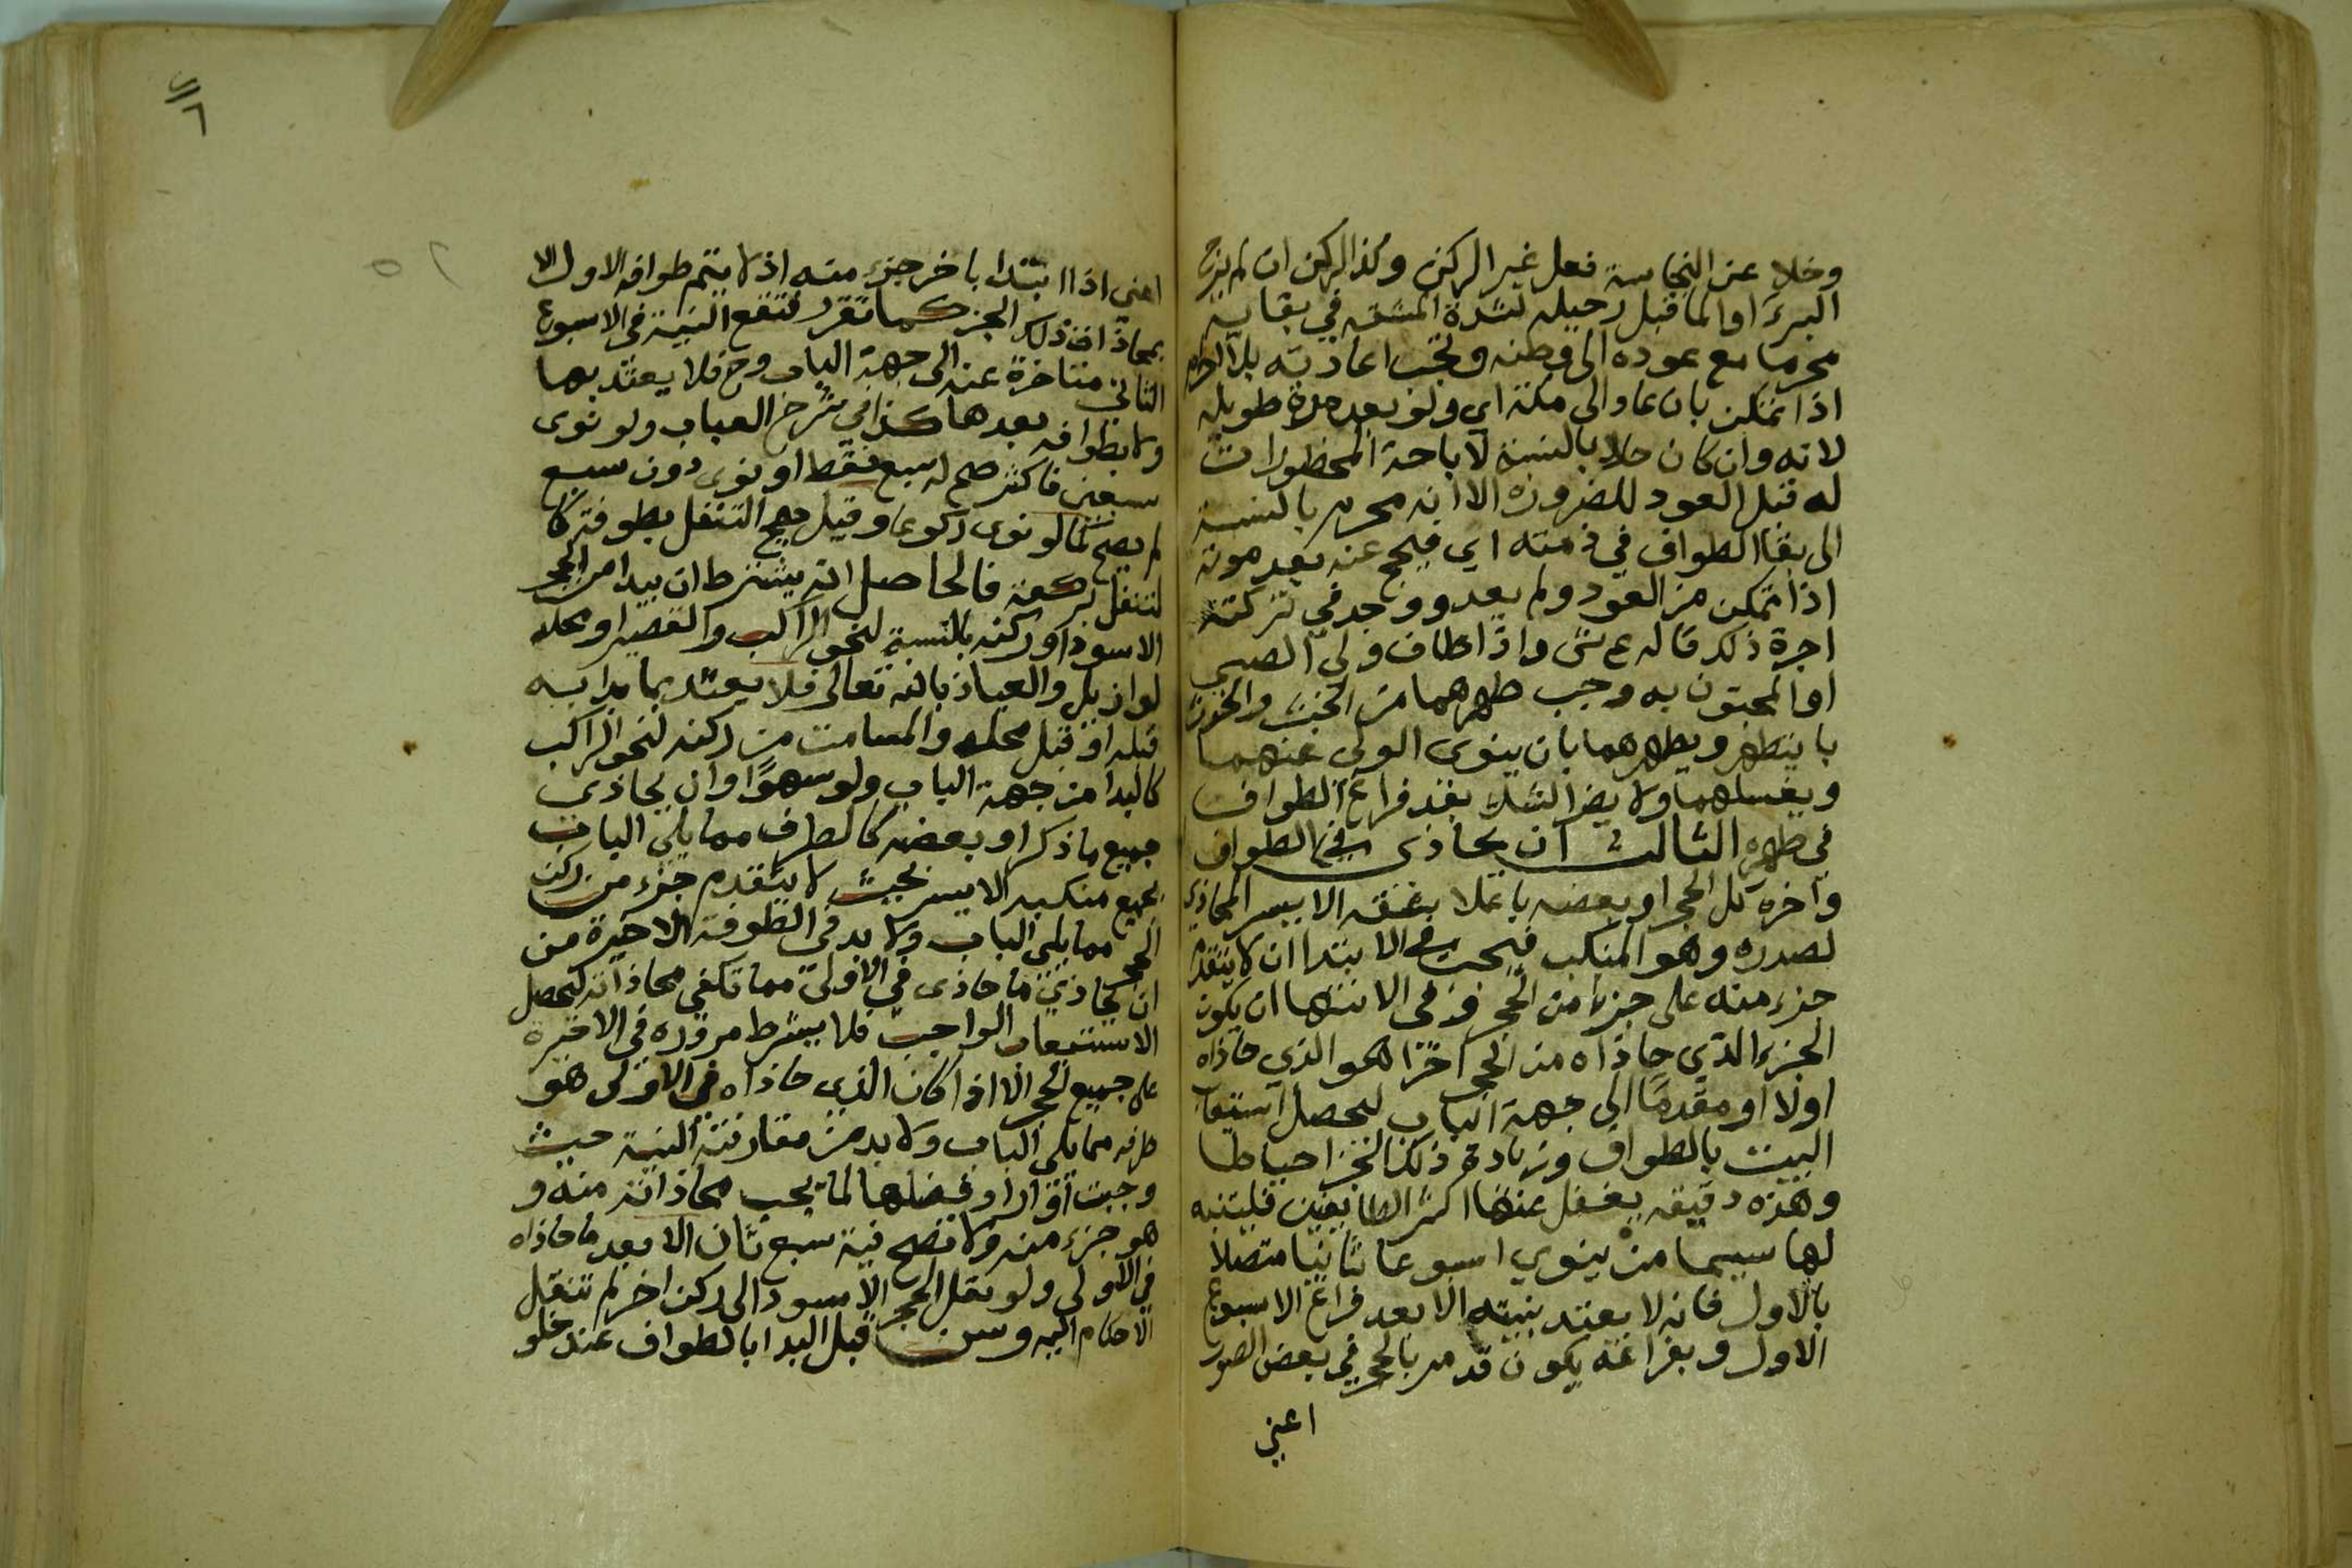 وخلا عن النجاسة فعل غير الركن وكذا الركن ان لم يرج
البرء او الماء قبل رحيله لشدة المشقه في بقايه
محرما مع عوده الى وطنه وتجب اعادته بلا احرام
اذا تمكن بان عاد الى مكة اي ولو بعد مدة طويلة
لانه وان كان حلا بالنسبة لاباحة المحظورات
له قبل العود للضرورة الا انه محرم بالنسبة
الى بقا الطواف في ذمته اي فيحج عنه بعد موته
اذا تمكن من العود ولم يعد ووجد في تركته
اجرة ذلك قاله ع ش واذا طاف ولي الصبي
او المجنون به وجب طهرهما من الخبث والحدث
بان يتطهر ويطهرهما بان ينوى الولى عنهما
ويغسلهما ولا يضر الشك بعد فراغ الطواف
في طهره الثالث ان يحاذى في الطواف
واخره كل الحجر او بعضه باعلا شقه الايسر المحاذي
لصدره وهو المنكب فيجب في الابتدا ان لا يتقدم
جزء منه على جزء من الحجر وفي الانتها ان يكون
الجزء الذي حاذاه من الحجر اخرا هو الذي حاذاه
اولا او مقدما الى جهة الباب ليحصل استيعاب
البيت بالطواف وزيادة ذلك الجزء احتياطا
وهذه دقيقه يغفل عنها اكثر الطايفين فليتنبه
لها سيما من ينوي اسبوعا ثانيا متصلا
بالاول فانه لا يعتد بنيته الا بعد فراغ الاسبوع
الاول وبفراغه يكون قد مر بالحجر في بعض الصور
اعني
٦
٥٢
اعني اذا ابتدا باخر جزء منه اذ لا يتم طوافه الاول الا
بمحاذاة ذلك الجزء كما تقرر فتقع النية في الاسبوع
الثاني متاخرة عنه الى جهة الباب وح فلا يعتد بها
ولا بطوافه بعدها كذا في شرح العباب ولو نوى
سبعين فاكثر صح له سبع فقط او نوى دون سبع
لم يصح كما لو نوى ركوعا وقيل يصح التنفل بطوفة كا
لتنفل بركعة فالحاصل انه يشترط ان يبدا من الحجر
الاسود او ركنه بالنسبة لنحو الراكب والقصير او محله
لو ازيل والعياذ بالله تعالى فلا يعتد بما بدا به
قبله او قبل محله والمسامت من ركنه لنحو الراكب
كالبدا من جهة الباب ولو سهوًا وان يحاذى
جميع ما ذكر او بعضه كالطرف مما يلي الباب
بجميع منكبه الايسر بحيث لا يتقدم جزء من ركن
الحجر مما يلى الباب ولا بد في الطوفة الاخيرة من
ان يحاذي ما حاذى في الاولى مما تكفي محاذاته ليحصل
الاستيعاب الواجب فلا يشترط مروره في الاخيرة
على جميع الحجر الا اذا كان الذي حاذاه في الاولى هو
طرفه مما يلي الباب ولا بد من مقارنة النية حيث
وجبت او اراد فضلها لما يجب محاذاته منه و
هو جزء منه ولا تصح نية سبع ثان الا بعد ما حاذاه
في الاولى ولو نقل الحجر الاسود الى ركن اخر لم تنتقل
الاحكام اليه وسن قبل البدا بالطواف عند خلو